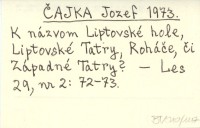 ČAJKA Jozef 1973.
K názvom Liptovské hole,
Liptovské Tatry, Roháče, či
Západné Tatry? — Les
29, nr 2: 72-73.